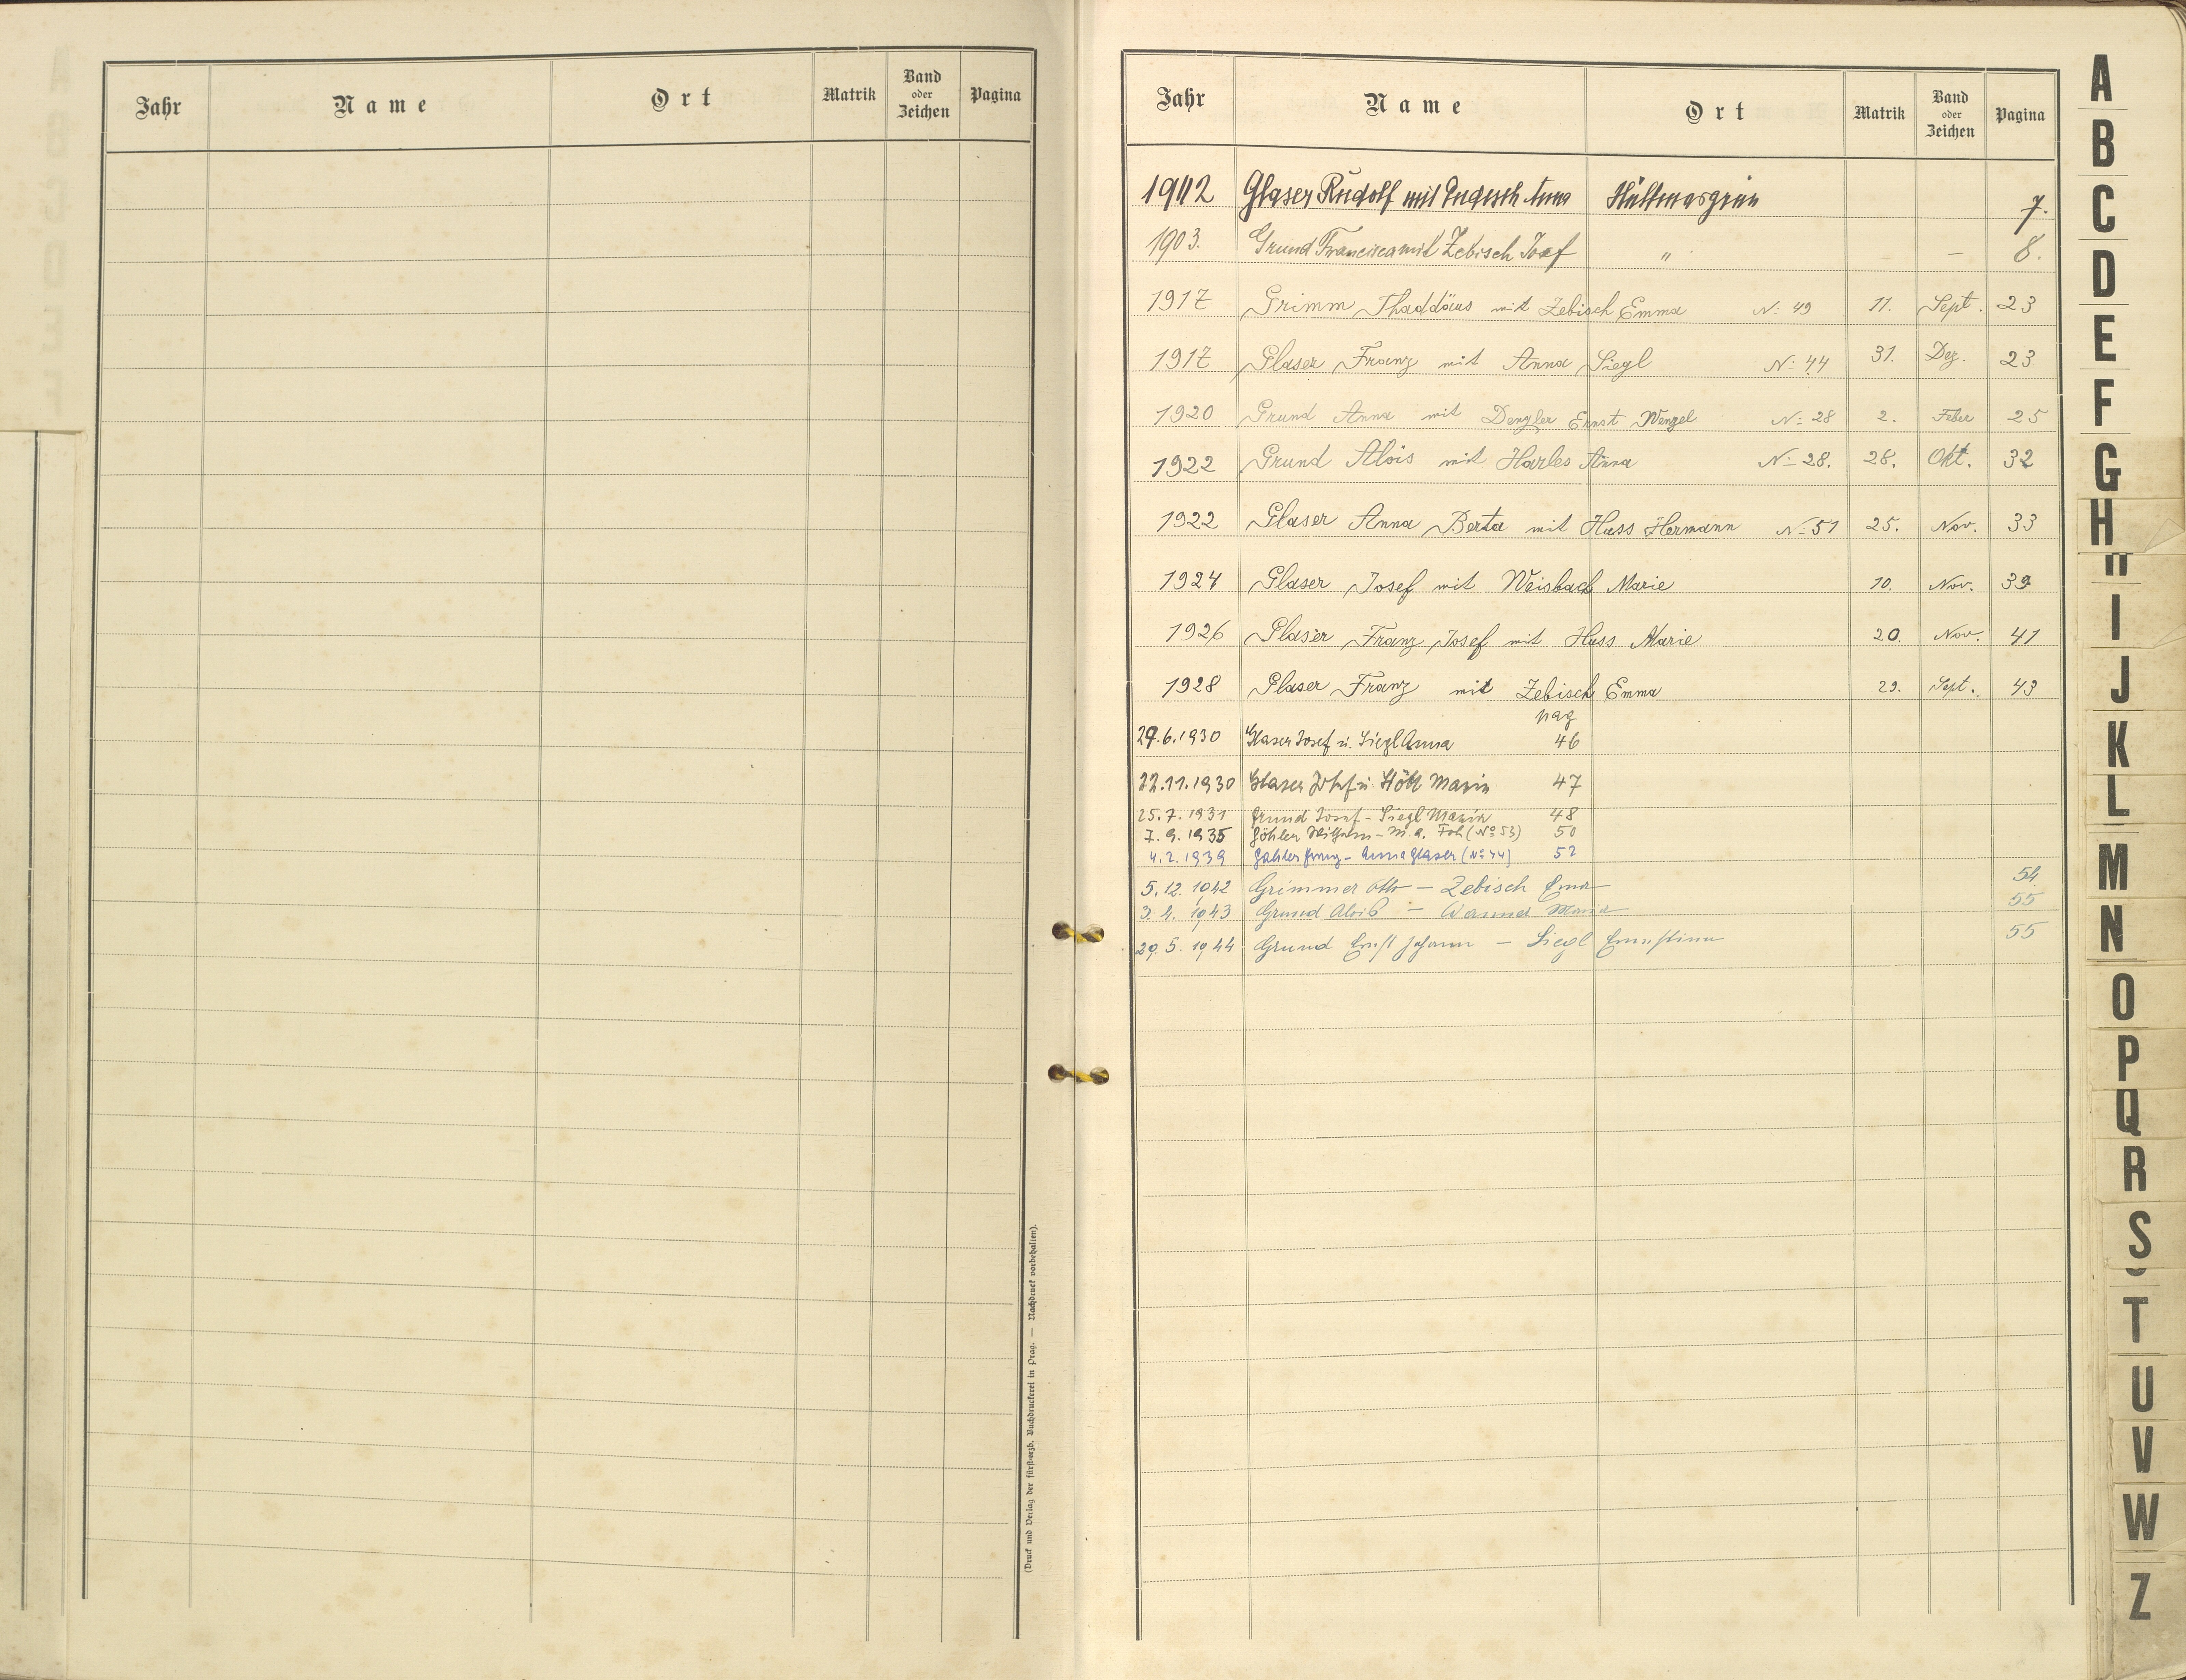 Jahr Name Ort Matrik Band oder Zeichen Pagina
(Druck und Verlag der fürst-erzb. Buchdruckerei in Prag. — Nachdruck vorbehalten).
Jahr Name Ort Matrik Band oder Zeichen Pagina
Glaser Rudolf mit 7.
1903. Grund Francisca mit Zebisch Josef " — — 8.
1917 Grimm Thaddäus mit Zebisch Emma N: 49 11. Sept. 23
1917 Glaser Franz mit Anna Siegl N: 44 31. Dez. 23
1920 Grund Anna mit Dengler Ernst Wenzel N: 28 2. Feber 25
1922 Grund Alois mit Harles Anna N: 28. 28. Okt. 32
1922 Glaser Anna Berta mit Hass Hermann N: 51 25. Nov. 33
1924 Glaser Josef mit Weisbach Marie 10. Nov. 39
1926 Glaser Franz Josef mit Hass Marie 20. Nov. 41
1928 Glaser Franz mit Zebisch Emma 29. Sept. 43
pag
29.6.1930 Glaser Josef u. Siegl Anna 46
22.11.1930 Glaser Josef u. Höll Marie 47
25.7.1931 Grund Josef - Siegl Marie 48
7.9.1935 Göhler Wilhelm - M. A. (No 53) 50
4.2.1939 Franz - Anna Glaser (No 44) 52
5.12.1942 Grimmer Otto — Zebisch Ema 54
3.4.1943 Grund Alois — Maria 55
29.5.1944 Grund Ernst Johann — Siegl Ernestine 55
A
B
C
D
E
F
G
H
I
J
K
L
M
N
O
P
Q
R
S
T
U
V
W
Z